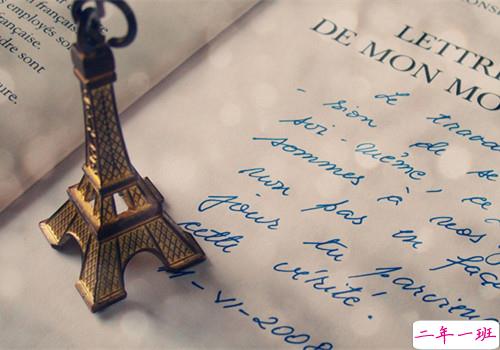 français
employés son
française.
dre sont
ure.
LETTR
DE MON MO
Le trava
- sion de se
soi-même, ce
sommes à nos
non pas en faç
jour tu parvien
cette vérité.
11-VI-2008
二年一班